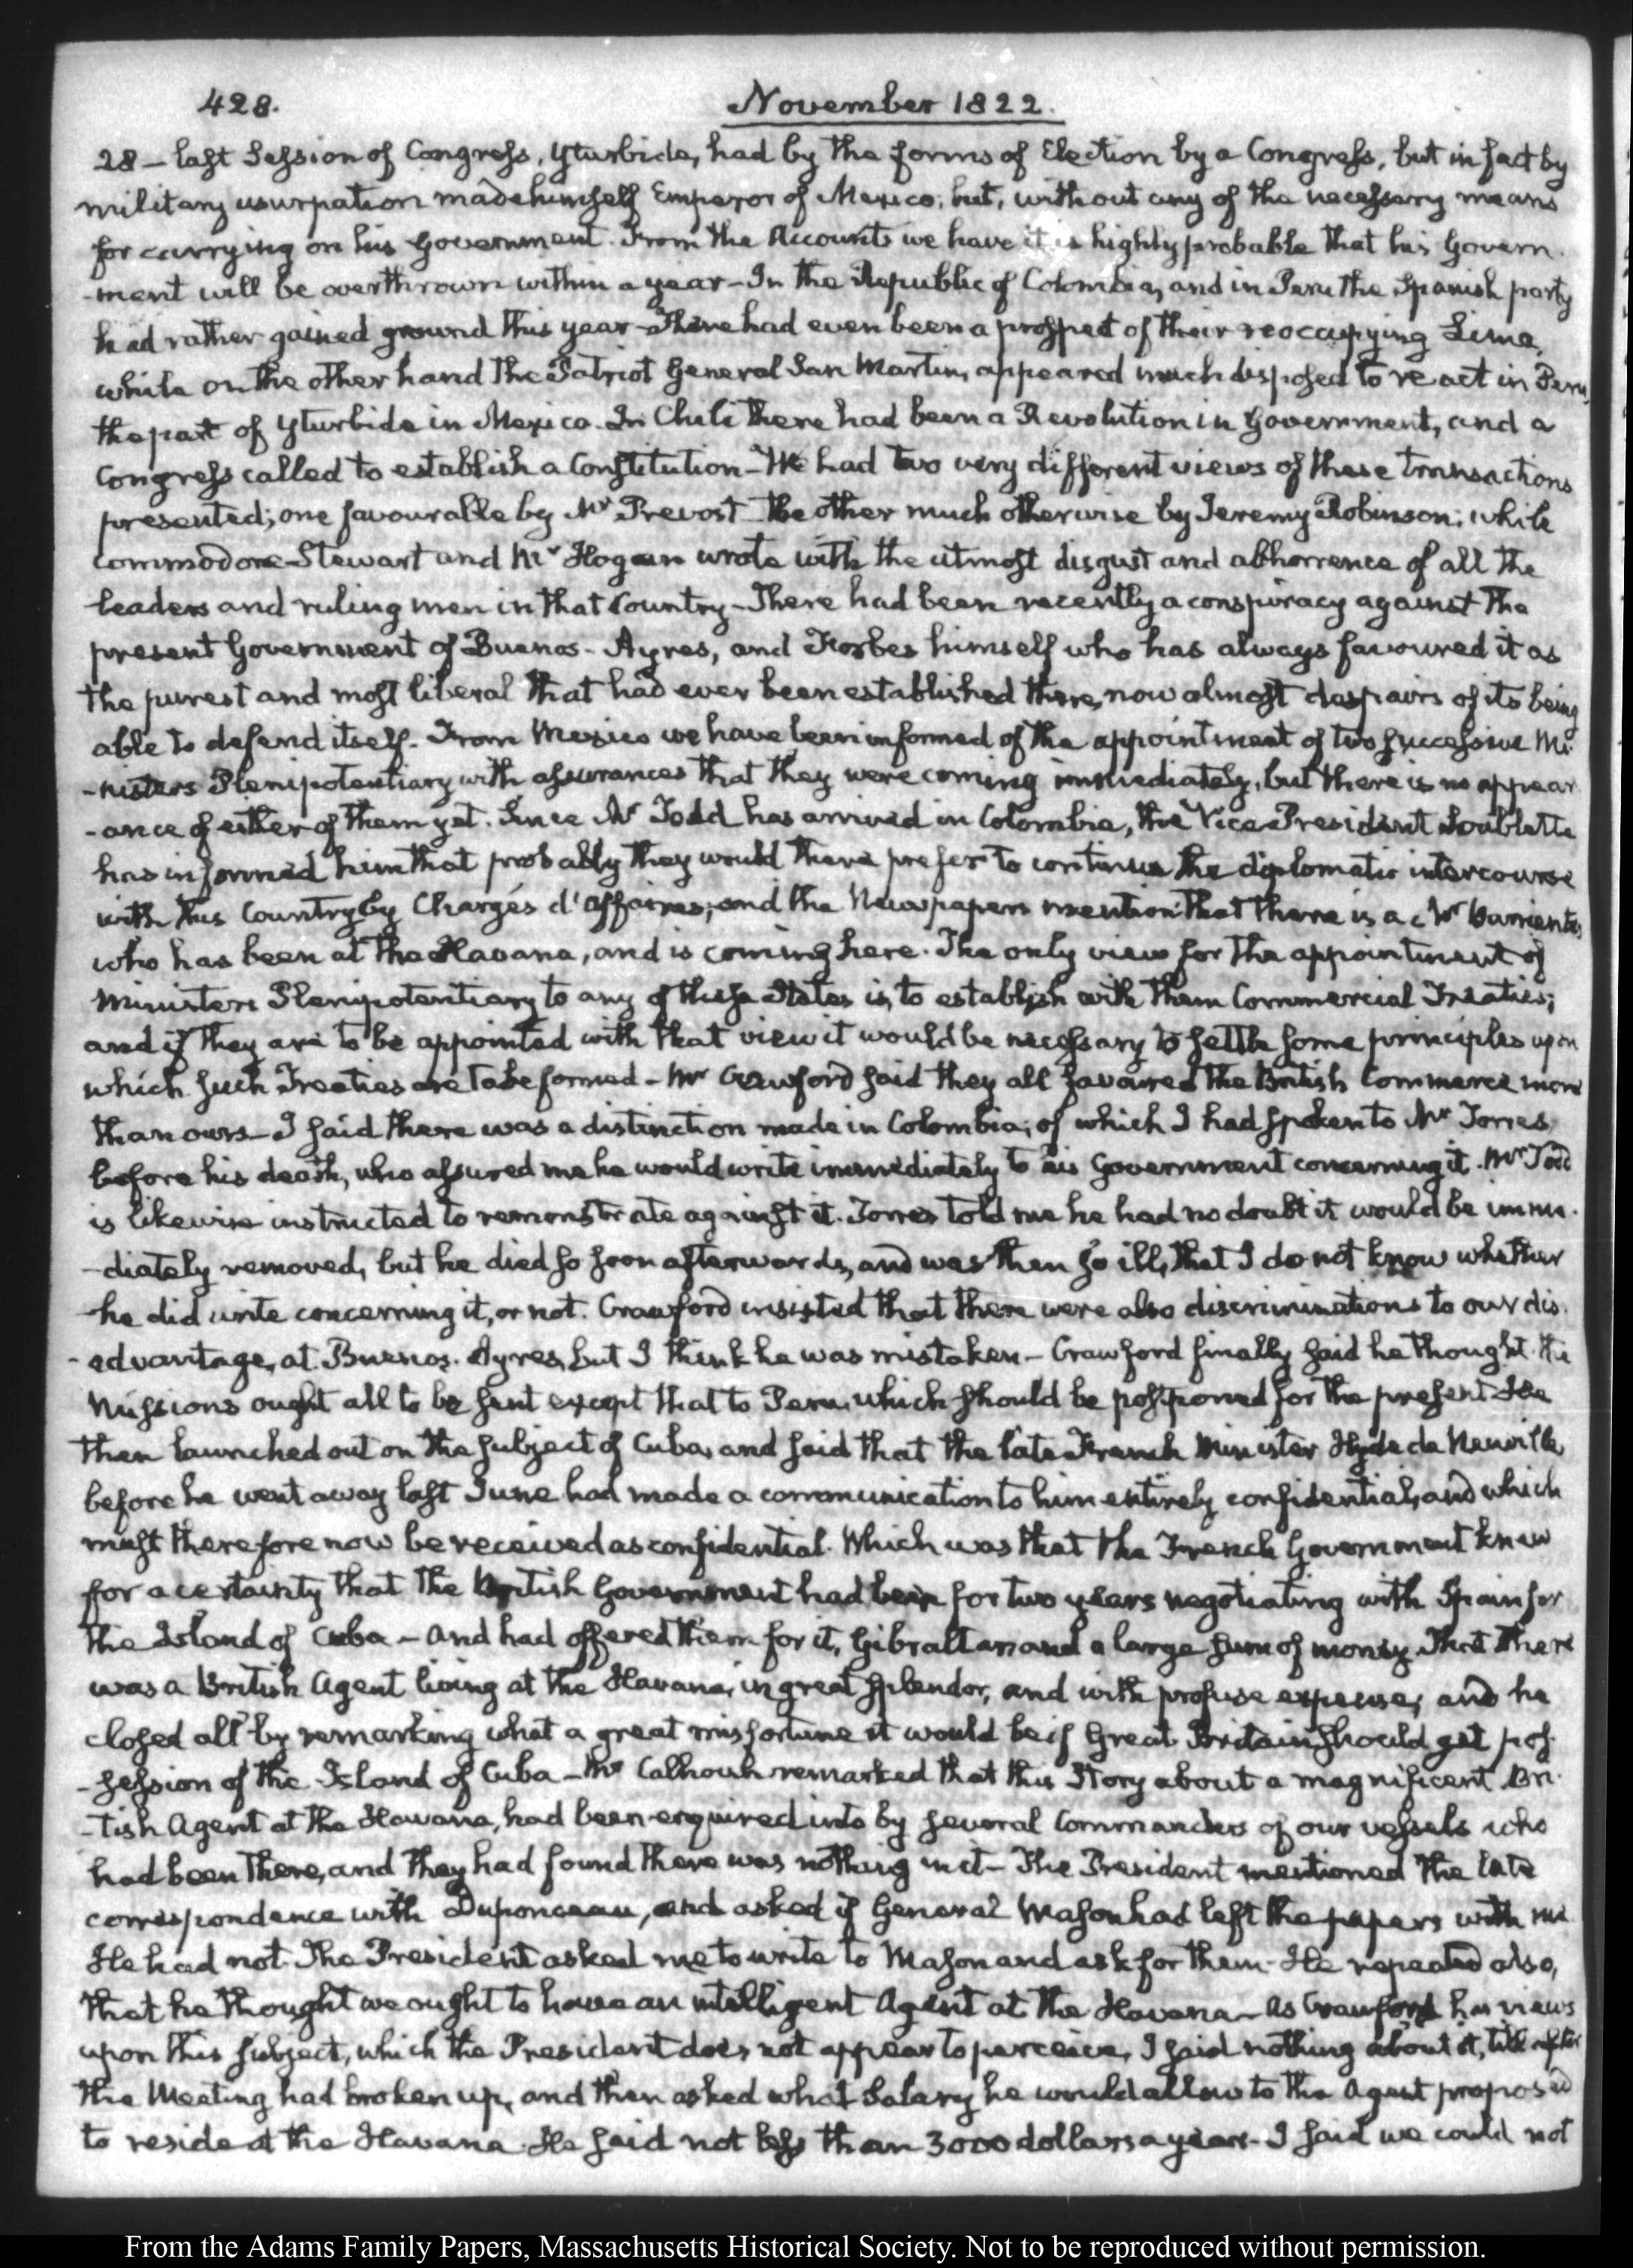 428.
November 1822.
28 – last Session of Congress, Yturbide, had by the forms of Election by a Congress, but in fact by
military usurpation made himself Emperor of Mexico; but, without any of the necessary means
for carrying on his Government. From the Accounts we have it is highly probable that his Govern-
-ment will be overthrown within a year – In the Republic of Colombia, and in Peru the Spanish party
had rather gained ground this year – There had even been a prospect of their reoccupying Lima,
while on the other hand the Patriot General San Martin, appeared much disposed to re act in Peru,
the part of Yturbide in Mexico. In Chili there had been a Revolution in Government, and a
Congress called to establish a Constitution – We had two very different views of these transactions
presented; one favourable by Mr Prevost – the other much otherwise by Jeremy Robinson; while
Commodore Stewart and Mr Hogan wrote with the utmost disgust and abhorrence of all the
leaders and ruling men in that Country – There had been recently a conspiracy against the
present Government of Buenos-Ayres, and Forbes himself who has always favoured it as
the purest and most liberal that had ever been established there, now almost despairs of its being
able to defend itself. From Mexico we have been informed of the appointment of two successive Mi-
-nisters Plenipotentiary with assurances that they were coming immediately, but there is no appear-
-ance of either of them yet. Since Mr Todd has arrived in Colombia, the Vice-President Soublette
has informed him that probably they would there prefer to continue the diplomatic intercourse
with this Country by Chargés d'affaires; and the Newspapers mention that there is a Mr Barrientos
who has been at the Havana, and is coming here. The only view for the appointment of
Ministers Plenipotentiary to any of these States is, to establish with them Commercial Treaties;
and if they are to be appointed with that view it would be necessary to settle some principles upon
which such Treaties are to be formed – Mr Crawford said they all favoured the British Commerce more
than ours – I said there was a distinction made in Colombia, of which I had spoken to Mr Torres
before his death, who assured me he would write immediately to his Government concerning it. Mr Todd
is likewise instructed to remonstrate against it. Torres told me he had no doubt it would be imme-
-diately removed, but he died so soon afterwards, and was then so ill, that I do not know whether
he did write concerning it, or not. Crawford insisted that there were also discriminations to our dis-
-advantage, at Buenos-Ayres, but I think he was mistaken – Crawford finally said he thought the
Missions ought all to be sent except that to Peru, which should be postponed for the present. He
then launched out on the subject of Cuba, and said that the late French Minister Hyde de Neuville,
before he went away last June had made a communication to him entirely confidential, and which
must therefore now be received as confidential. Which was that the French Government knew
for a certainty that the British Government had been for two years negotiating with Spain for
the Island of Cuba – and had offered them for it, Gibraltar and a large sum of money. That there
was a British Agent living at the Havana, in great splendor, and with profuse expense, and he
closed all by remarking what a great misfortune it would be if Great Britain should get pos-
-session of the Island of Cuba – Mr Calhoun remarked that this Story about a magnificent Bri-
-tish Agent at the Havana, had been enquired into by several Commanders of our vessels who
had been there, and they had found there was nothing in it – The President mentioned the late
correspondence with Duponceau, and asked if General Mason had left the papers with me.
He had not. The President asked me to write to Mason and ask for them. He repeated also,
that he thought we ought to have an intelligent Agent at the Havana – As Crawford has views
upon this subject, which the President does not appear to perceive, I said nothing about it, till after
the Meeting had broken up, and then asked what Salary he would allow to the Agent proposed
to reside at the Havana. He said not less than 3000 dollars a year – I said we could not
From the Adams Family Papers, Massachusetts Historical Society. Not to be reproduced without permission.